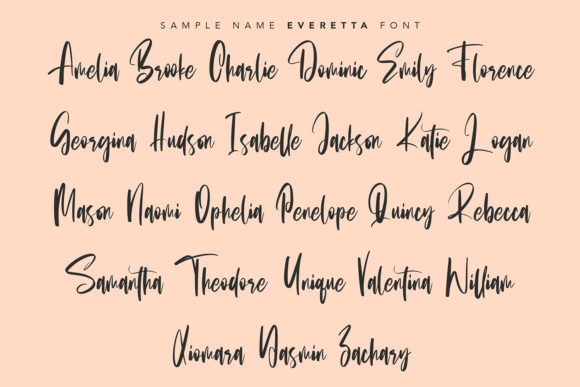 SAMPLE NAME EVERETTA FONT
Amelia Brooke Charlie Dominic Emily Florence
Georgina Hudson Isabelle Jackson Katie Logan
Mason Naomi Ophelia Penelope Quincy Rebecca
Samantha Theodore Unique Valentina William
Xiomara Yasmin Zachary